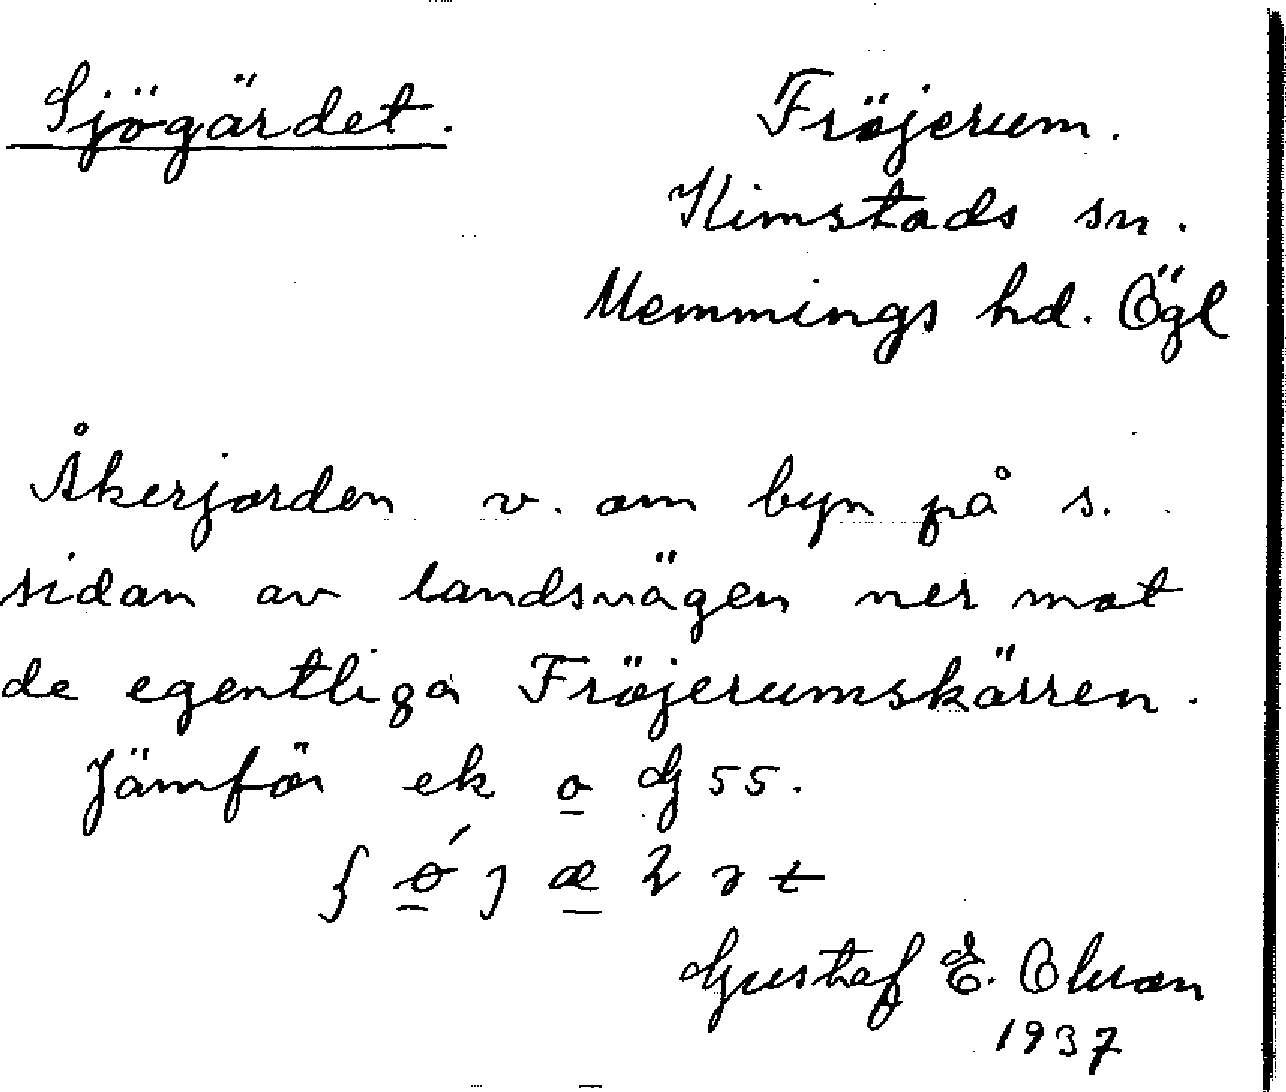 Sjögärdet. Fröjerum.
Kimstads sn.
Memmings hd. Ögl
Åkerjorden v. om byn på s.
sidan av landsvägen ner mot
de egentliga Fröjerumskärren.
Jämför ek o G 55.
Gustaf E.
1937